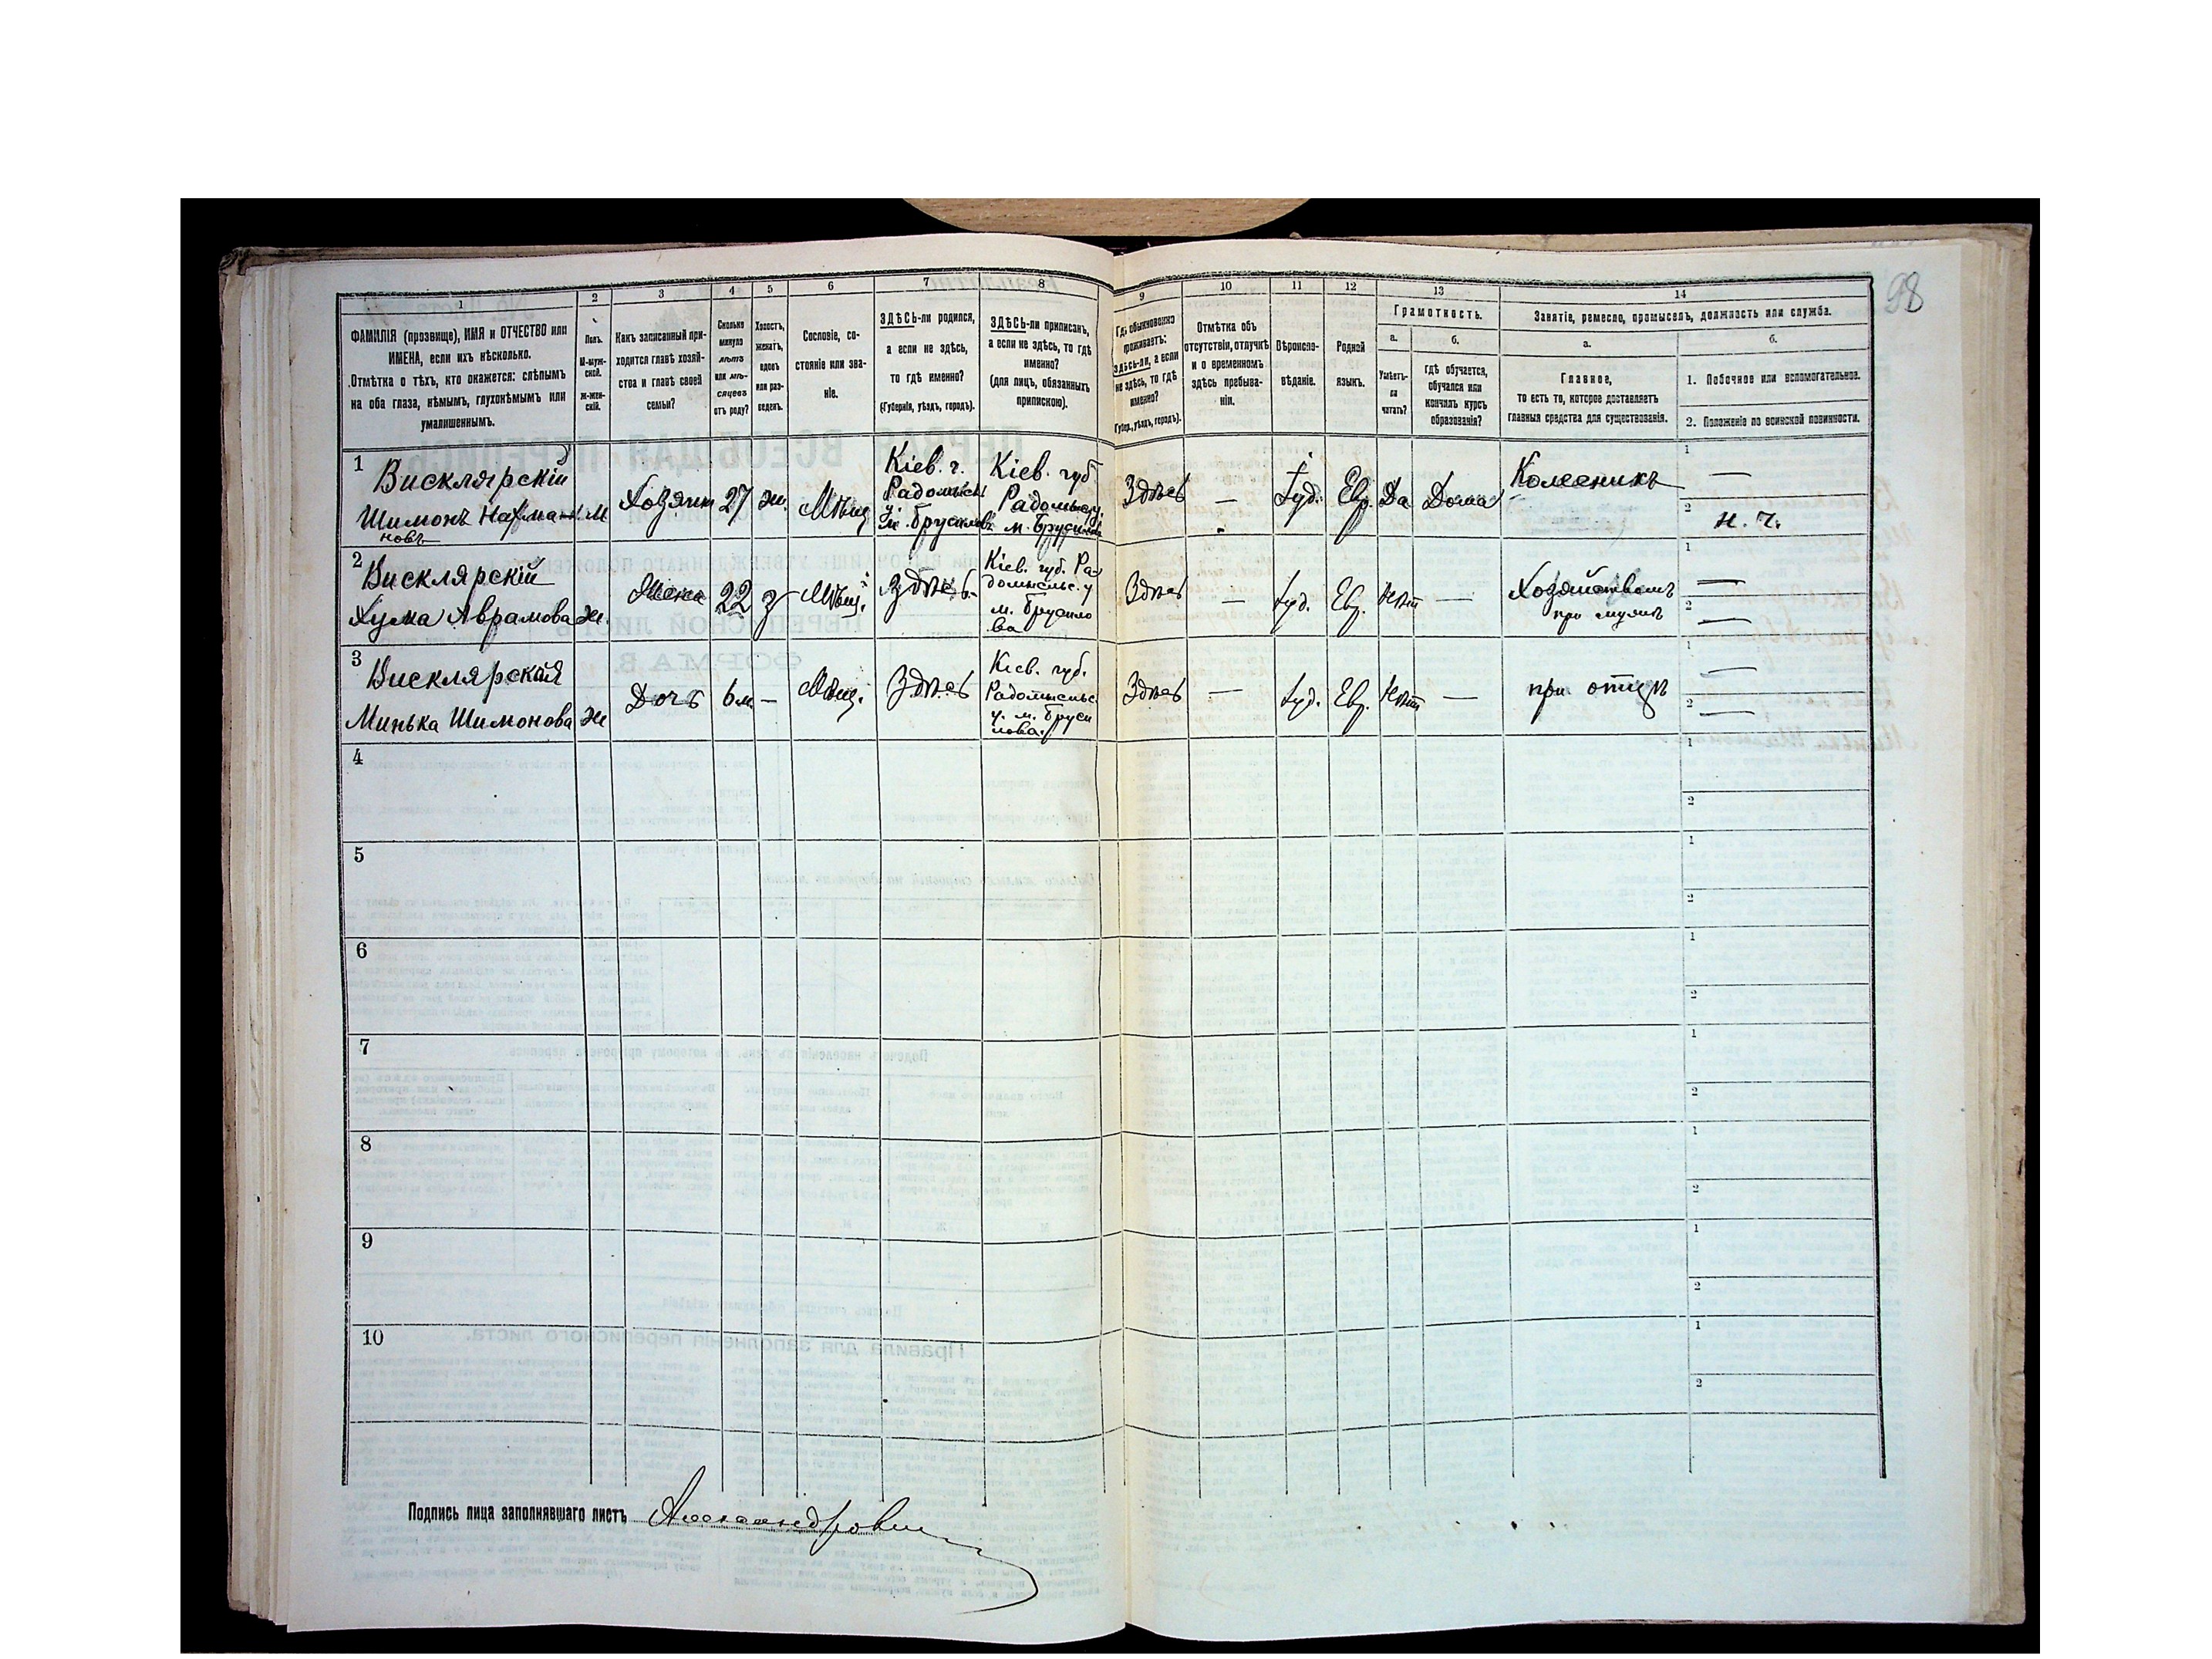 98
1 2 3 4 5 6 7 8 9 10 11 12 13 14
ФАМИЛІЯ (прозвище), ИМЯ и ОТЧЕСТВО или
ИМЕНА, если ихъ нѣсколько.
Отмѣтка о тѣхъ, кто окажется: слѣпымъ
на оба глаза, нѣмымъ, глухонѣмымъ или
умалишеннымъ.
Полъ.
М-муж-
ской.
Ж-жен-
скій.
Какъ записанный при-
ходится главѣ хозяй-
ства и главѣ своей
семьи?
Сколько
минуло
лѣтъ
или мѣ-
сяцевъ
отъ роду?
Холостъ,
женатъ,
вдовъ
или раз-
веденъ.
Сословіе, со-
стояніе или зва-
ніе.
ЗДѢСЬ-ли родился,
а если не здѣсь,
то гдѣ именно?
(Губернія, уѣздъ, городъ).
ЗДѢСЬ-ли приписанъ,
а если не здѣсь, то гдѣ
именно?
(для лицъ, обязанныхъ
припискою).
Гдѣ обыкновенно
проживаетъ:
здѣсь-ли, а если
не здѣсь, то гдѣ
именно?
(Губер., уѣздъ, городъ).
Отмѣтка объ
отсутствіи, отлучкѣ
и о временномъ
здѣсь пребыва-
ніи.
Вѣроиспо-
вѣданіе.
Родной
языкъ.
Грамотность.
а.
Умѣетъ-
ли
читать?
б.
гдѣ обучается,
обучался или
кончилъ курсъ
образованія?
Занятіе, ремесло, промыселъ, должность или служба.
а.
Главное,
то есть то, которое доставляетъ
главныя средства для существованія.
б.
1. Побочное или вспомогательное.
2. Положеніе по воинской повинности.
1
Вискляр­скій
Шимонъ Нахма-
новъ
М
Хозяин
27
ж.
Мѣщ.
Кіев. г.
Радомысл.
у. м. Брусиловъ
Кіев. губ.
Радомысл. у.
м. Брусилова
Здѣсь
—
Іуд.
Евр.
Да
Дома
Колесникъ
1
—
2
н. ч.
2
Висклярскій
Хума Аврамова
Ж.
Жена
22
З
Мѣщ.
Здѣсь
Кіев. губ. Ра-
домысльс. у
м. Брусило
ва
Здѣсь
—
Іуд.
Евр.
Нѣт
—
Хозяйствомъ
при мужѣ
1
—
2
—
3
Висклярская
Минька Шимонова
Ж
Дочь
6 м
—
Мѣщ.
Здѣсь
Кіев. губ.
Радомысльс.
у. м. Бруси
лова.
Здѣсь
—
Іуд.
Евр.
Нѣт
—
при отцѣ
1
—
2
—
4
1
2
5
1
2
6
1
2
7
1
2
8
1
2
9
1
2
10
1
2
Подпись лица заполнявшаго листъ